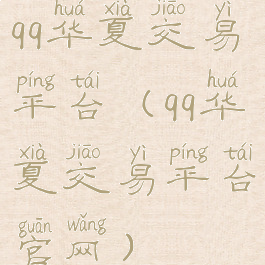 huá xià jiāo yì
99华夏交易
píng tái huá
平台（99华
xià jiāo yì píng tái
夏交易平台
guān wǎng
官网）